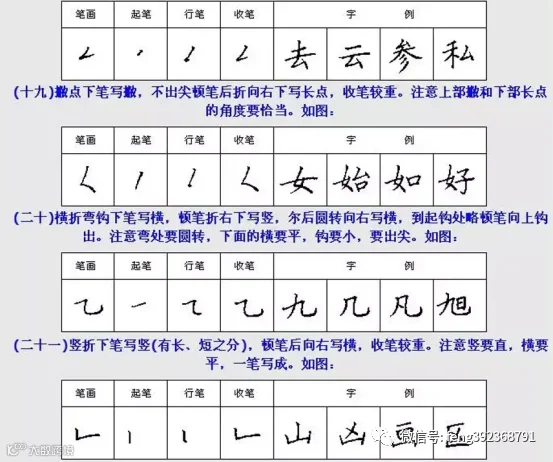 笔画 起笔 行笔 收笔 字 例
去 云 参 私
(十九)撇点下笔写撇，不出尖顿笔后折向右下写长点，收笔较重。注意上部撇和下部长点
的角度要恰当。如图：
笔画 起笔 行笔 收笔 字 例
女 始 如 好
(二十)横折弯钩下笔写横，顿笔折右下写竖，尔后圆转向右写横，到起钩处略顿笔向上钩
出。注意弯处要圆转，下面的横要平，钩要小，要出尖。如图：
笔画 起笔 行笔 收笔 字 例
乙 九 几 凡 旭
(二十一)竖折下笔写竖(有长、短之分)，顿笔后向右写横，收笔较重。注意竖要直，横要
平，一笔写成。如图：
笔画 起笔 行笔 收笔 字 例
山 凶 画 区
微信号: feng392368791